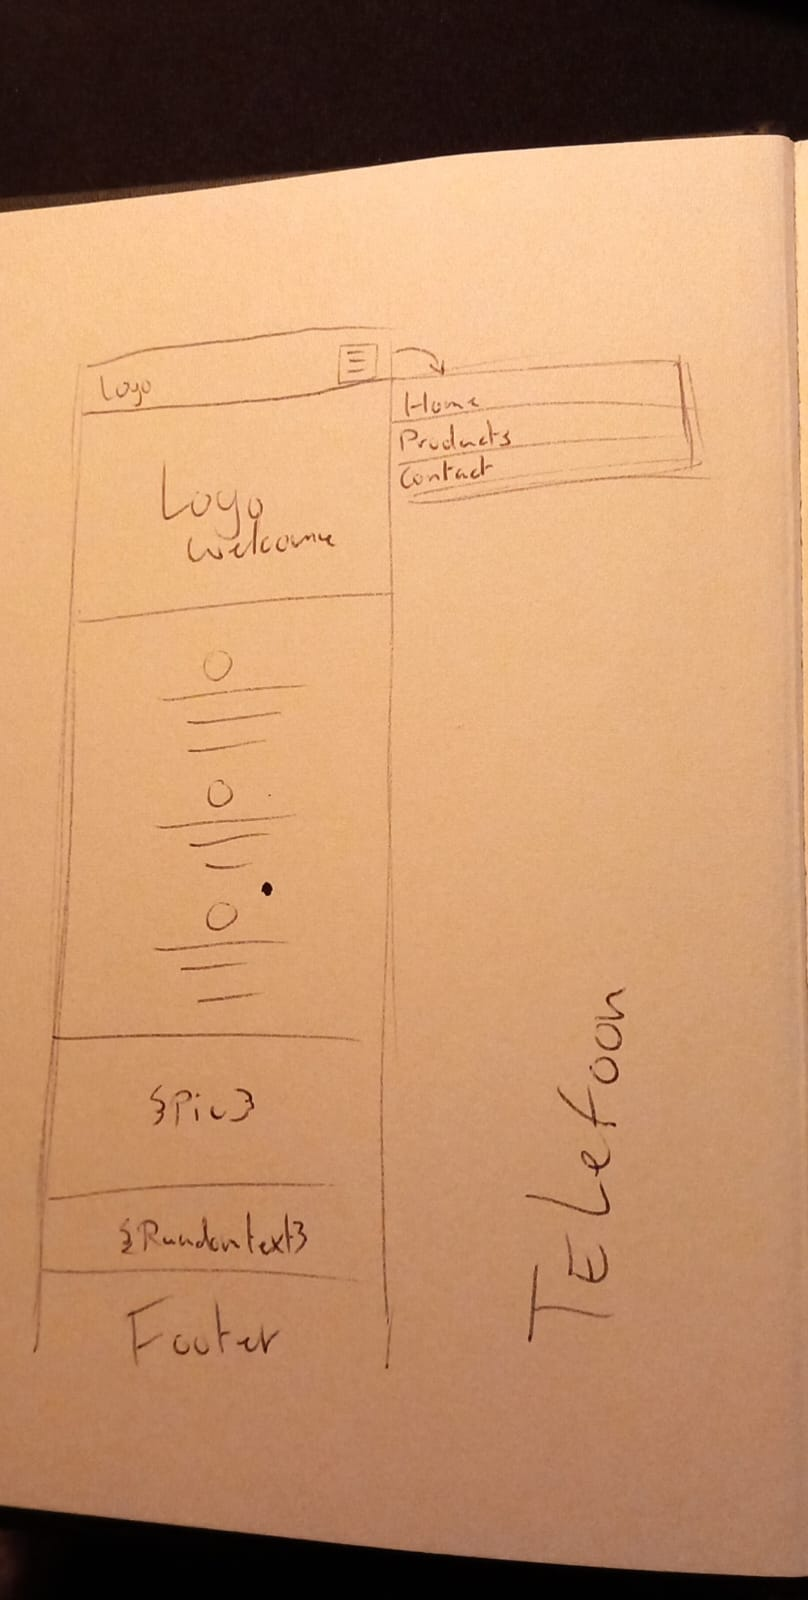 Logo
Home
Products
Contact
Logo
Welcome
{Pic}
{Randomtext}
Footer
TELefoon